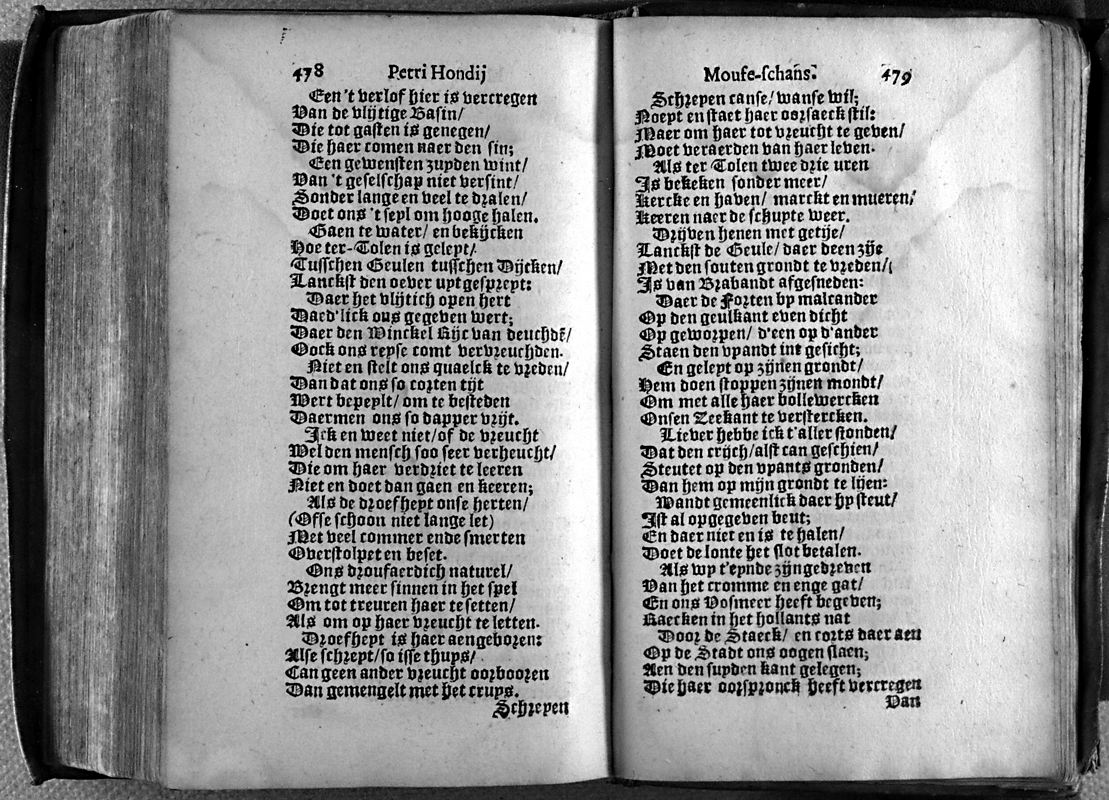 478 Petri Hondij
Een 't verlof hier is vercregen
Van de vlijtige Basin/
Die tot gasten is genegen/
Die haer comen naer den sin;
Een gewensten zuyden wint/
Van 't geselschap niet versint/
Sonder lange en veel te dralen/
Doet ons 't seyl om hooge halen.
Gaen te water/ en bekijcken
Hoe ter-Tolen is geleyt/
Tusschen Geulen tusschen Dijcken/
Lanckst den oever uytgespreyt:
Daer het vlijtich open hert
Daed'lick ons gegeven wert;
Daer den Winckel Rijc van deuchdē/
Oock ons reyse comt vervreuchden.
Niet en stelt ons quaelck te vreden/
Dan dat ons so corten tijt
Wert bepeylt/ om te besteden
Daermen ons so dapper vrijt.
Ick en weet niet/of de vreucht
Wel den mensch soo seer verheucht/
Die om haer verdriet te leeren
Niet en doet dan gaen en keeren;
Als de droefheyt onse herten/
(Ofse schoon niet lange let)
Met veel commer ende smerten
Overstolpet en beset.
Ons droufaerdich naturel/
Brengt meer sinnen in het spel
Om tot treuren haer te setten/
Als om op haer vreucht te letten.
Droefheyt is haer aengeboren:
Alse schreyt/so isse thuys/
Can geen ander vreucht oorbooren
Dan gemengelt met het cruys.
Schreyen
Mouse-schans. 479
Schreyen canse/ wanse wil;
Noeyt en staet haer oorsaeck stil:
Maer om haer tot vreucht te geven/
Moet veraerden van haer leven.
Als ter Tolen twee drie uren
Is bekeken sonder meer/
Kercke en haven/ marckt en mueren/
Keeren naer de schuyte weer.
Drijven henen met getije/
Lanckst de Geule/ daer deen zije
Met den souten grondt te vreden/
Is van Brabandt afgesneden:
Daer de Forten by malcander
Op den geulkant even dicht
Op geworpen/ d'een op d'ander
Staen den vyandt int gesicht;
En geleyt op zijnen grondt/
Hem doen stoppen zijnen mondt/
Om met alle haer bollewercken
Onsen Zeekant te verstercken.
Liever hebbe ick t'aller stonden/
Dat den crijch/alst can geschien/
Steutet op den vyants gronden/
Dan hem op mijn grondt te lijen:
Wandt gemeenlick daer hy steut/
Ist al opgegeven beut;
En daer niet en is te halen/
Doet de lonte het slot betalen.
Als wy t'eynde zijn gedreven
Van het cromme en enge gat/
En ons Vosmeer heeft begeven;
Raecken in het hollants nat
Door de Staeck/ en corts daer aen
Op de Stadt ons oogen slaen;
Aen den suyden kant gelegen;
Die haer oorspronck heeft vercregen
Van